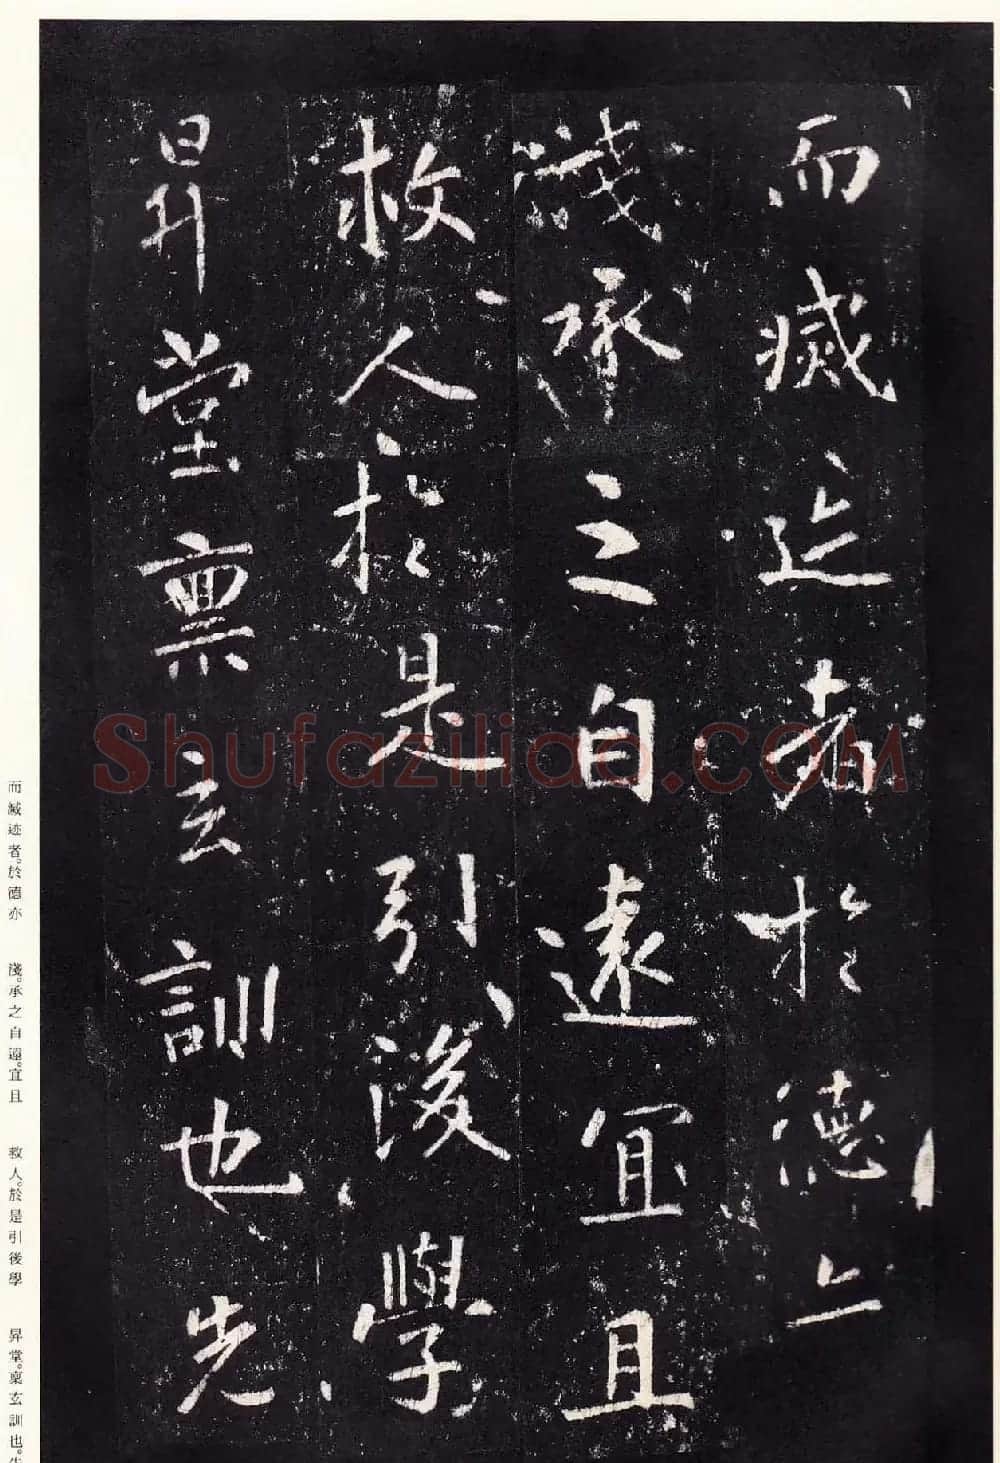 而滅迹者於德亦
淺承之自遠宜且
救人於是引後學
昇堂稟玄訓也先
Shufaziliao.COM
而滅迹者。於德亦
淺。承之自遠。宜且
救人。於是引後學
昇堂。稟玄訓也。先